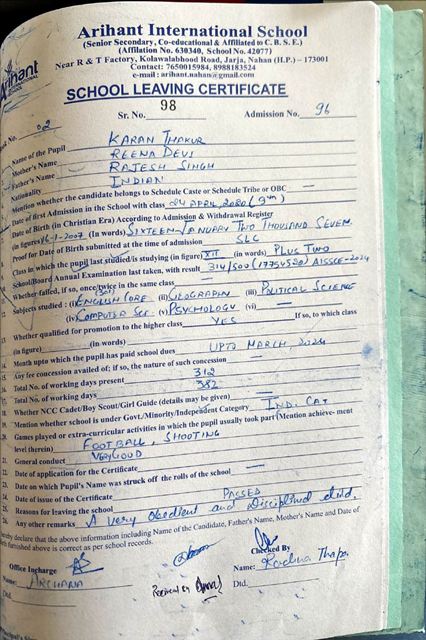 Arihant International School
(Senior Secondary, Co-educational & Affiliated to C. B. S. E.)
(Affilation No. 630340, School No. 42077)
Near R & T Factory, Kolawalabhood Road, Jarja, Nahan (H.P.) – 173001
Contact: 7650015984, 8988183524
e-mail : arihant.nahan@gmail.com
Arihant
SCHOOL LEAVING CERTIFICATE
Sr. No. 98 Admission No. 96
No. 02
Name of the Pupil KARAN THAKUR
Mother's Name REENA DEVI
Father's Name RAJESH SINGH
Nationality INDIAN
Mention whether the candidate belongs to Schedule Caste or Schedule Tribe or OBC —
Date of first Admission in the School with class 24 APRIL 2020 (9th)
Date of Birth (in Christian Era) According to Admission & Withdrawal Register
(in figures) 16-1-2007 (In words) SIXTEEN-JANUARY TWO THOUSAND SEVEN
Proof for Date of Birth submitted at the time of admission SLC
Class in which the pupil last studied/is studying (in figure) XII (in words) PLUS TWO
School/Board Annual Examination last taken, with result 314/500 (17754520) AISSCE-2024
Whether failed, if so, once/twice in the same class
Subjects studied : (i) ENGLISH CORE (301) (ii) GEOGRAPHY (iii) POLITICAL SCIENCE
(iv) COMPUTER SCE (v) PSYCHOLOGY (vi) —
Whether qualified for promotion to the higher class YES If so, to which class
(in figure) (in words)
Month upto which the pupil has paid school dues UPTO MARCH, 2024
Any fee concession availed of; if so, the nature of such concession —
Total No. of working days present 312
Total No. of working days 382
18. Whether NCC Cadet/Boy Scout/Girl Guide (details may be given) —
Mention whether school is under Govt./Minority/Independent Category IND. CAT
20. Games played or extra-curricular activities in which the pupil usually took part (Mention achieve- ment
level therein) FOOTBALL, SHOOTING
21. General conduct VERY GOOD
22. Date of application for the Certificate
23. Date on which Pupil's Name was struck off the rolls of the school —
24. Date of issue of the Certificate
25. Reasons for leaving the school PASSED
26. Any other remarks A very obedient and disciplined child.
hereby declare that the above information including Name of the Candidate, Father's Name, Mother's Name and Date of
Birth furnished above is correct as per school records.
Office Incharge
Checked By
Name: ARCHANA
Name:
Received by
Dtd.
Dtd.